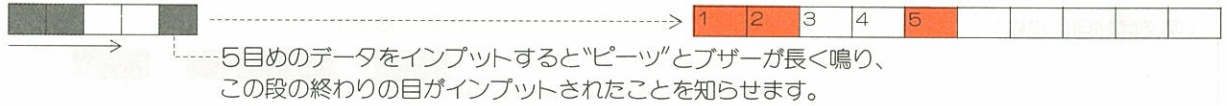 1 2 3 4 5
5目めのデータをインプットすると"ピーッ"とブザーが長く鳴り、
この段の終わりの目がインプットされたことを知らせます。